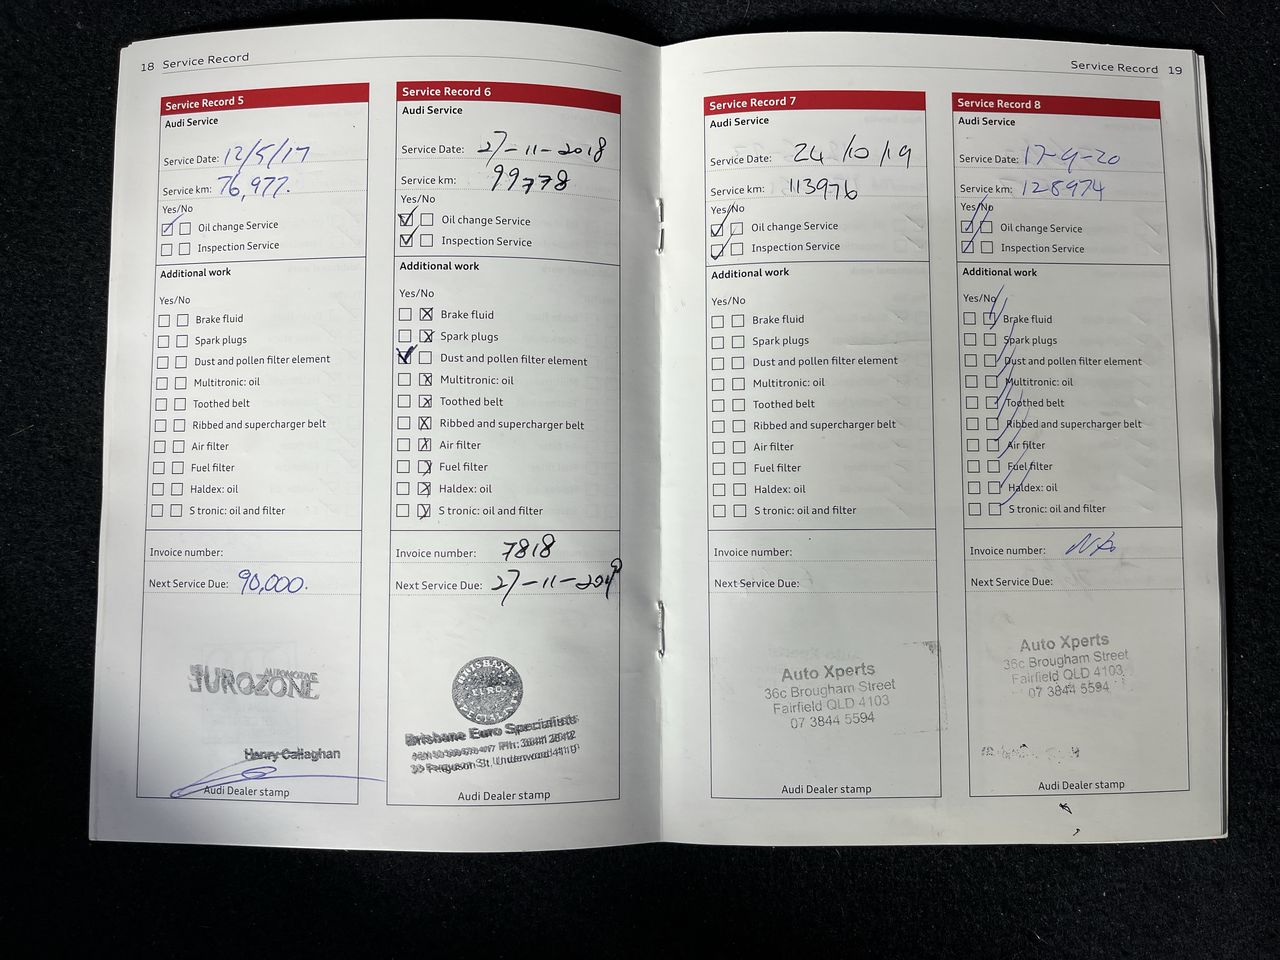 18 Service Record
Service Record 5
Audi Service
Service Date: 12/5/17
Service km: 76,977.
Yes/No
Oil change Service
Inspection Service
Additional work
Yes/No
Brake fluid
Spark plugs
Dust and pollen filter element
Multitronic: oil
Toothed belt
Ribbed and supercharger belt
Air filter
Fuel filter
Haldex: oil
S tronic: oil and filter
Invoice number:
Next Service Due: 90,000.
AUTOMOTIVE
EUROZONE
Henry Callaghan
Audi Dealer stamp
Service Record 6
Audi Service
Service Date: 27-11-2018
Service km: 99778
Yes/No
Oil change Service
Inspection Service
Additional work
Yes/No
Brake fluid
Spark plugs
Dust and pollen filter element
Multitronic: oil
Toothed belt
Ribbed and supercharger belt
Air filter
Fuel filter
Haldex: oil
S tronic: oil and filter
Invoice number: 7818
Next Service Due: 27-11-2019
BRISBANE
EURO
SPECIALISTS
Brisbane Euro Specialists
30 Ferguson St. Underwood 4119
Audi Dealer stamp
Service Record 19
Service Record 7
Audi Service
Service Date: 24/10/19
Service km: 113976
Yes/No
Oil change Service
Inspection Service
Additional work
Yes/No
Brake fluid
Spark plugs
Dust and pollen filter element
Multitronic: oil
Toothed belt
Ribbed and supercharger belt
Air filter
Fuel filter
Haldex: oil
S tronic: oil and filter
Invoice number:
Next Service Due:
Auto Xperts
36c Brougham Street
Fairfield QLD 4103
07 3844 5594
Audi Dealer stamp
Service Record 8
Audi Service
Service Date: 17-9-20
Service km: 128974
Yes/No
Oil change Service
Inspection Service
Additional work
Yes/No
Brake fluid
Spark plugs
Dust and pollen filter element
Multitronic: oil
Toothed belt
Ribbed and supercharger belt
Air filter
Fuel filter
Haldex: oil
S tronic: oil and filter
Invoice number:
Next Service Due:
Auto Xperts
36c Brougham Street
Fairfield QLD 4103
07 3844 5594
Audi Dealer stamp